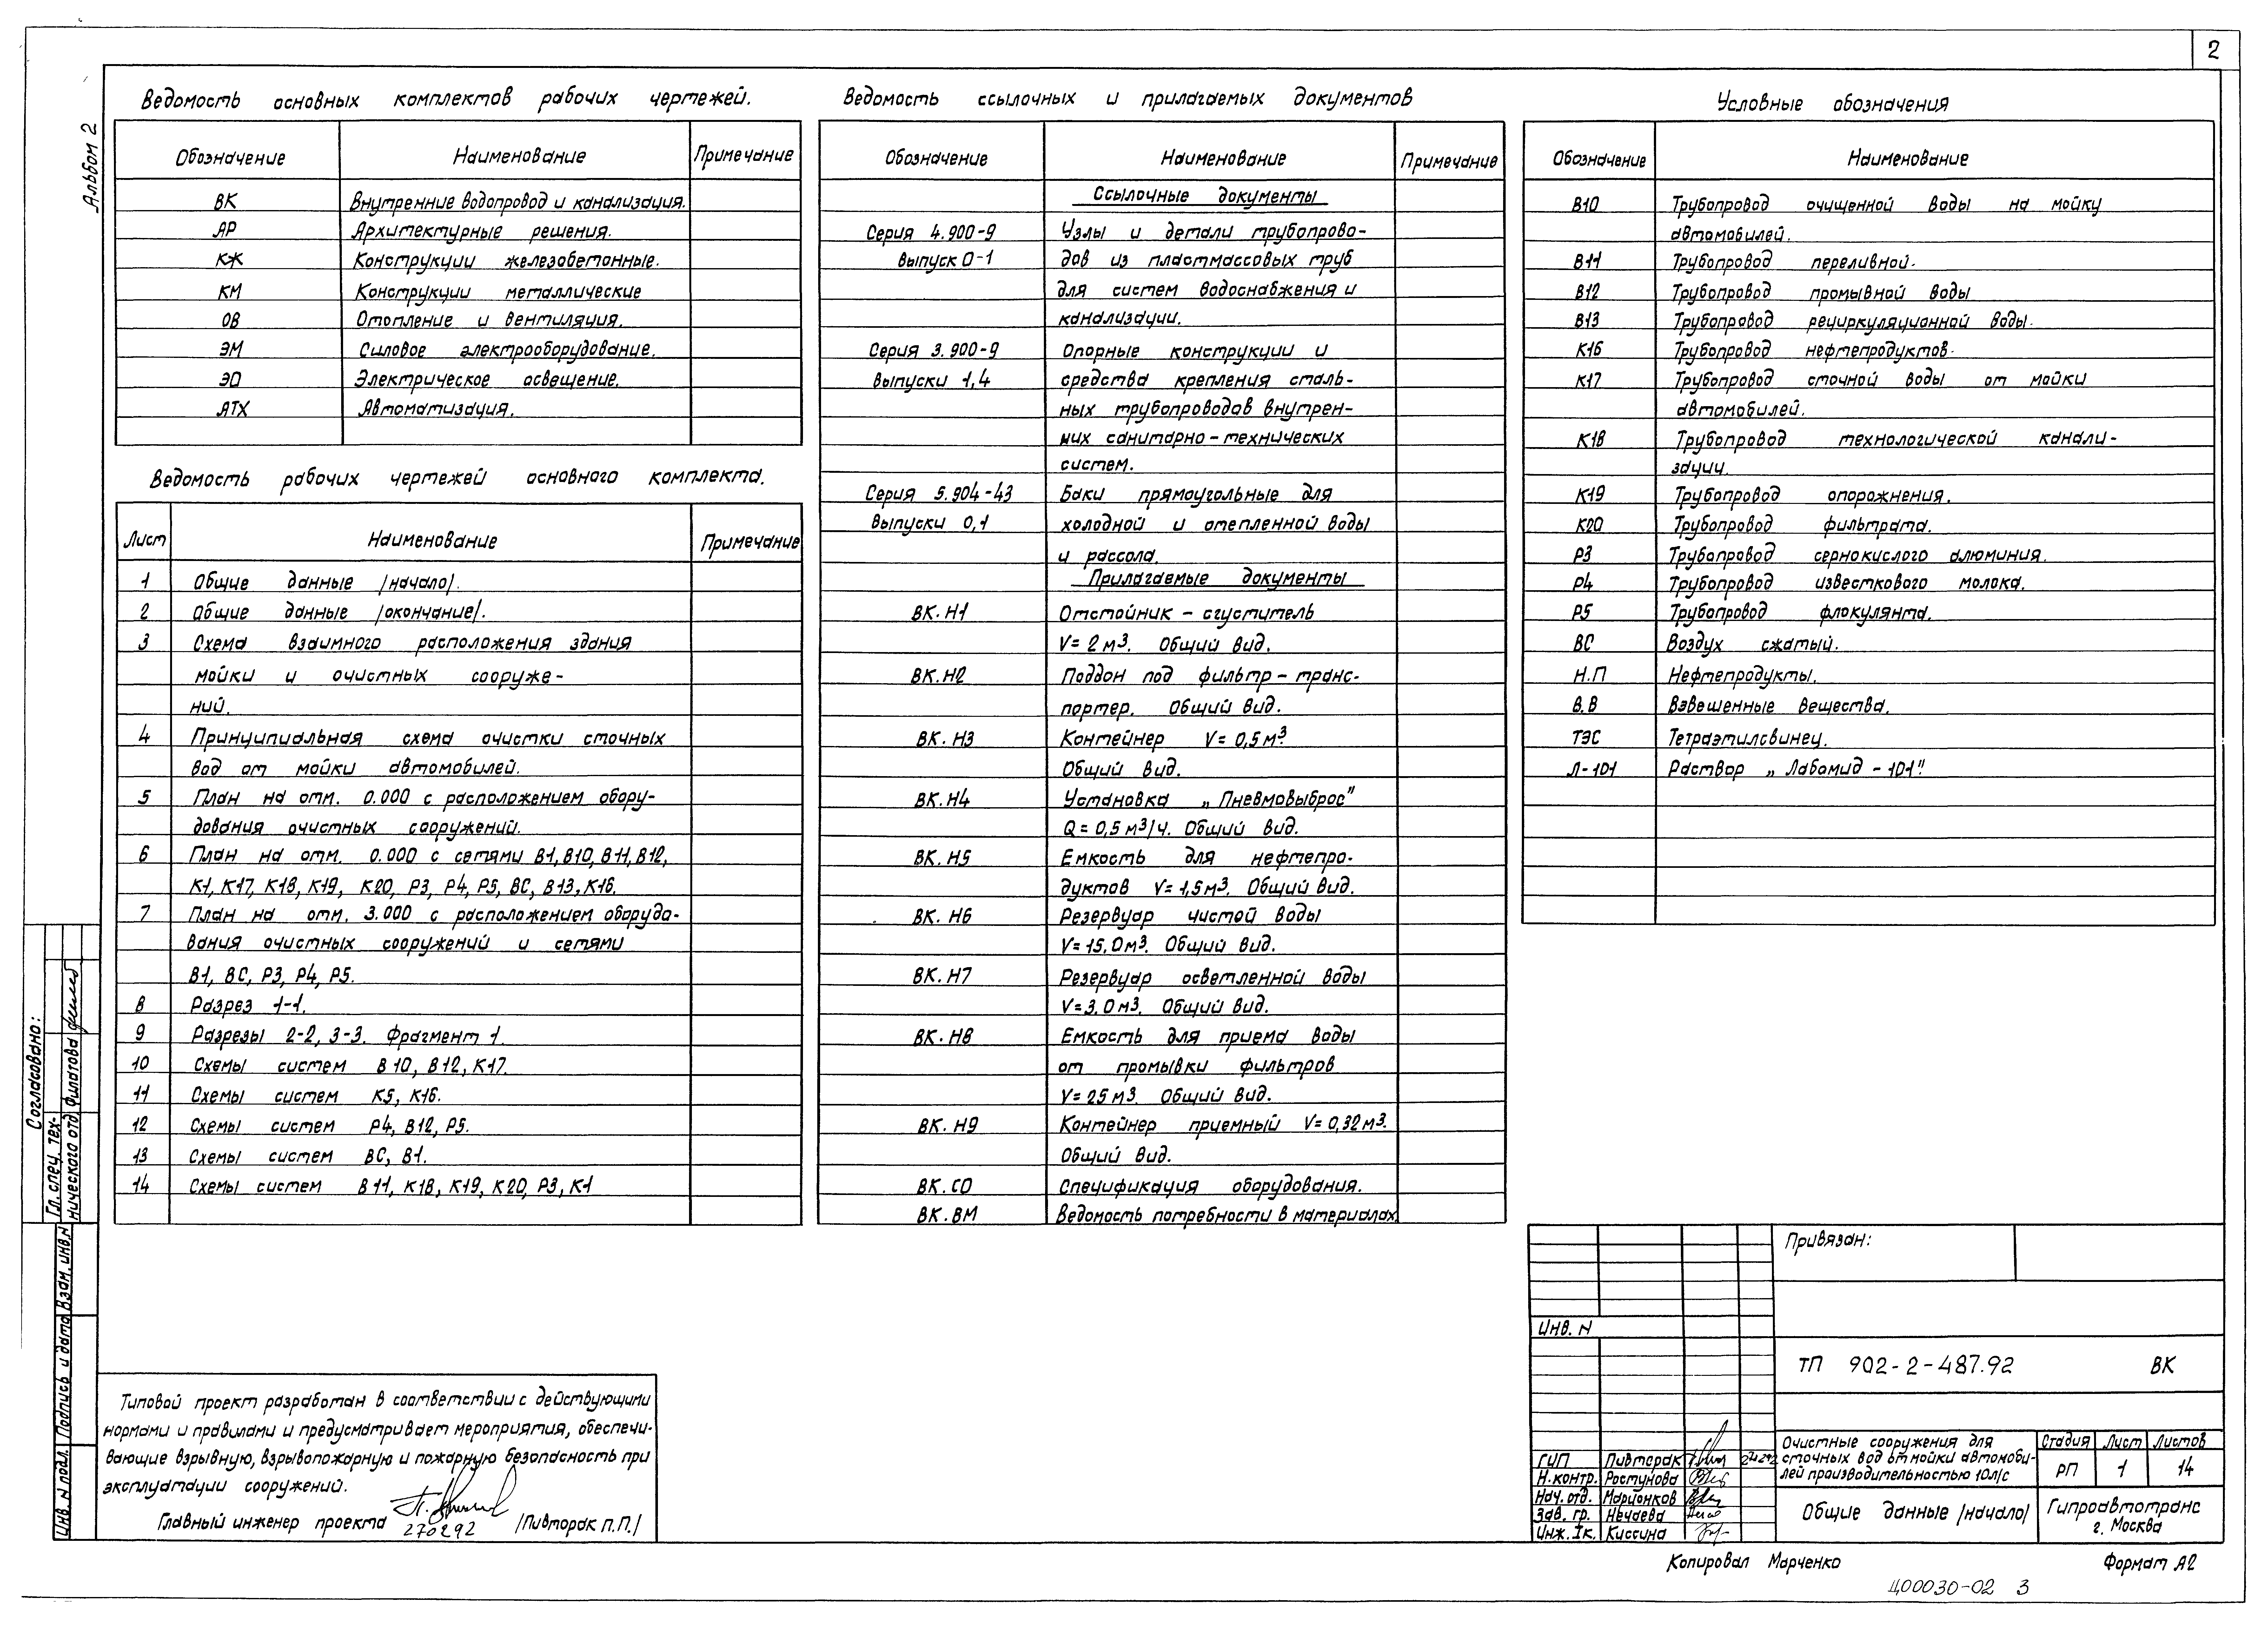 2
Альбом 2
Ведомость основных комплектов рабочих чертежей.
Обозначение Наименование Примечание
ВК Внутренние водопровод и канализация.
АР Архитектурные решения.
КЖ Конструкции железобетонные.
КМ Конструкции металлические
ОВ Отопление и вентиляция.
ЭМ Силовое электрооборудование.
ЭО Электрическое освещение.
АТХ Автоматизация.
Ведомость рабочих чертежей основного комплекта.
Лист Наименование Примечание
1 Общие данные /начало/.
2 Общие данные /окончание/.
3 Схема взаимного расположения здания
мойки и очистных сооруже-
ний.
4 Принципиальная схема очистки сточных
вод от мойки автомобилей.
5 План на отм. 0.000 с расположением обору-
дования очистных сооружений.
6 План на отм. 0.000 с сетями В1, В10, В11, В12,
К1, К17, К18, К19, К20, Р3, Р4, Р5, ВС, В13, К16.
7 План на отм. 3.000 с расположением оборудо-
вания очистных сооружений и сетями
В1, ВС, Р3, Р4, Р5.
8 Разрез 1-1.
9 Разрезы 2-2, 3-3. Фрагмент 1.
10 Схемы систем В10, В12, К17.
11 Схемы систем К5, К16.
12 Схемы систем Р4, В12, Р5.
13 Схемы систем ВС, В1.
14 Схемы систем В11, К18, К19, К20, Р3, К1
Ведомость ссылочных и прилагаемых документов
Обозначение Наименование Примечание
Ссылочные документы
Серия 4.900-9 Узлы и детали трубопрово-
выпуск 0-1 дов из пластмассовых труб
для систем водоснабжения и
канализации.
Серия 3.900-9 Опорные конструкции и
выпуски 1,4 средства крепления сталь-
ных трубопроводов внутрен-
них санитарно-технических
систем.
Серия 5.904-43 Баки прямоугольные для
выпуски 0,1 холодной и отепленной воды
и рассола.
Прилагаемые документы
ВК.Н1 Отстойник - сгуститель
V= 2 м³. Общий вид.
ВК.Н2 Поддон под фильтр-транс-
портер. Общий вид.
ВК.Н3 Контейнер V= 0,5 м³.
Общий вид.
ВК.Н4 Установка „Пневмовыброс"
Q= 0,5 м³/ч. Общий вид.
ВК.Н5 Емкость для нефтепро-
дуктов V= 1,5 м³. Общий вид.
ВК.Н6 Резервуар чистой воды
V= 15,0 м³. Общий вид.
ВК.Н7 Резервуар осветленной воды
V=3,0 м³. Общий вид.
ВК.Н8 Емкость для приема воды
от промывки фильтров
V= 25 м³. Общий вид.
ВК.Н9 Контейнер приемный V= 0,32 м³.
Общий вид.
ВК.СО Спецификация оборудования.
ВК.ВМ Ведомость потребности в материалах
Условные обозначения
Обозначение Наименование
В10 Трубопровод очищенной воды на мойку
автомобилей.
В11 Трубопровод переливной.
В12 Трубопровод промывной воды
В13 Трубопровод рециркуляционной воды.
К16 Трубопровод нефтепродуктов.
К17 Трубопровод сточной воды от мойки
автомобилей.
К18 Трубопровод технологической канали-
зации.
К19 Трубопровод опорожнения.
К20 Трубопровод фильтрата.
Р3 Трубопровод сернокислого алюминия.
Р4 Трубопровод известкового молока.
Р5 Трубопровод флокулянта.
ВС Воздух сжатый.
Н.П Нефтепродукты.
В.В Взвешенные вещества.
ТЭС Тетраэтилсвинец.
Л-101 Раствор „Лабомид - 101".
Согласовано:
Гл. спец. тех-
нического отд Филатова
Инв. N подл. Подпись и дата Взам. инв. N
Типовой проект разработан в соответствии с действующими
нормами и правилами и предусматривает мероприятия, обеспечи-
вающие взрывную, взрывопожарную и пожарную безопасность при
эксплуатации сооружений.
Главный инженер проекта 270292 /Пивторак П.П./
Привязан:
Инв. N
ТП 902-2-487.92 ВК
ГИП Пивторак
Н.контр. Ростунова
Нач. отд. Марионков
Зав. гр. Нечаева
Инж. Iк. Киссина
Очистные сооружения для
сточных вод от мойки автомоби-
лей производительностью 10л/с
Стадия Лист Листов
РП 1 14
Общие данные /начало/
Гипроавтотранс
г. Москва
Копировал Марченко Формат А2
Ц00030-02 3